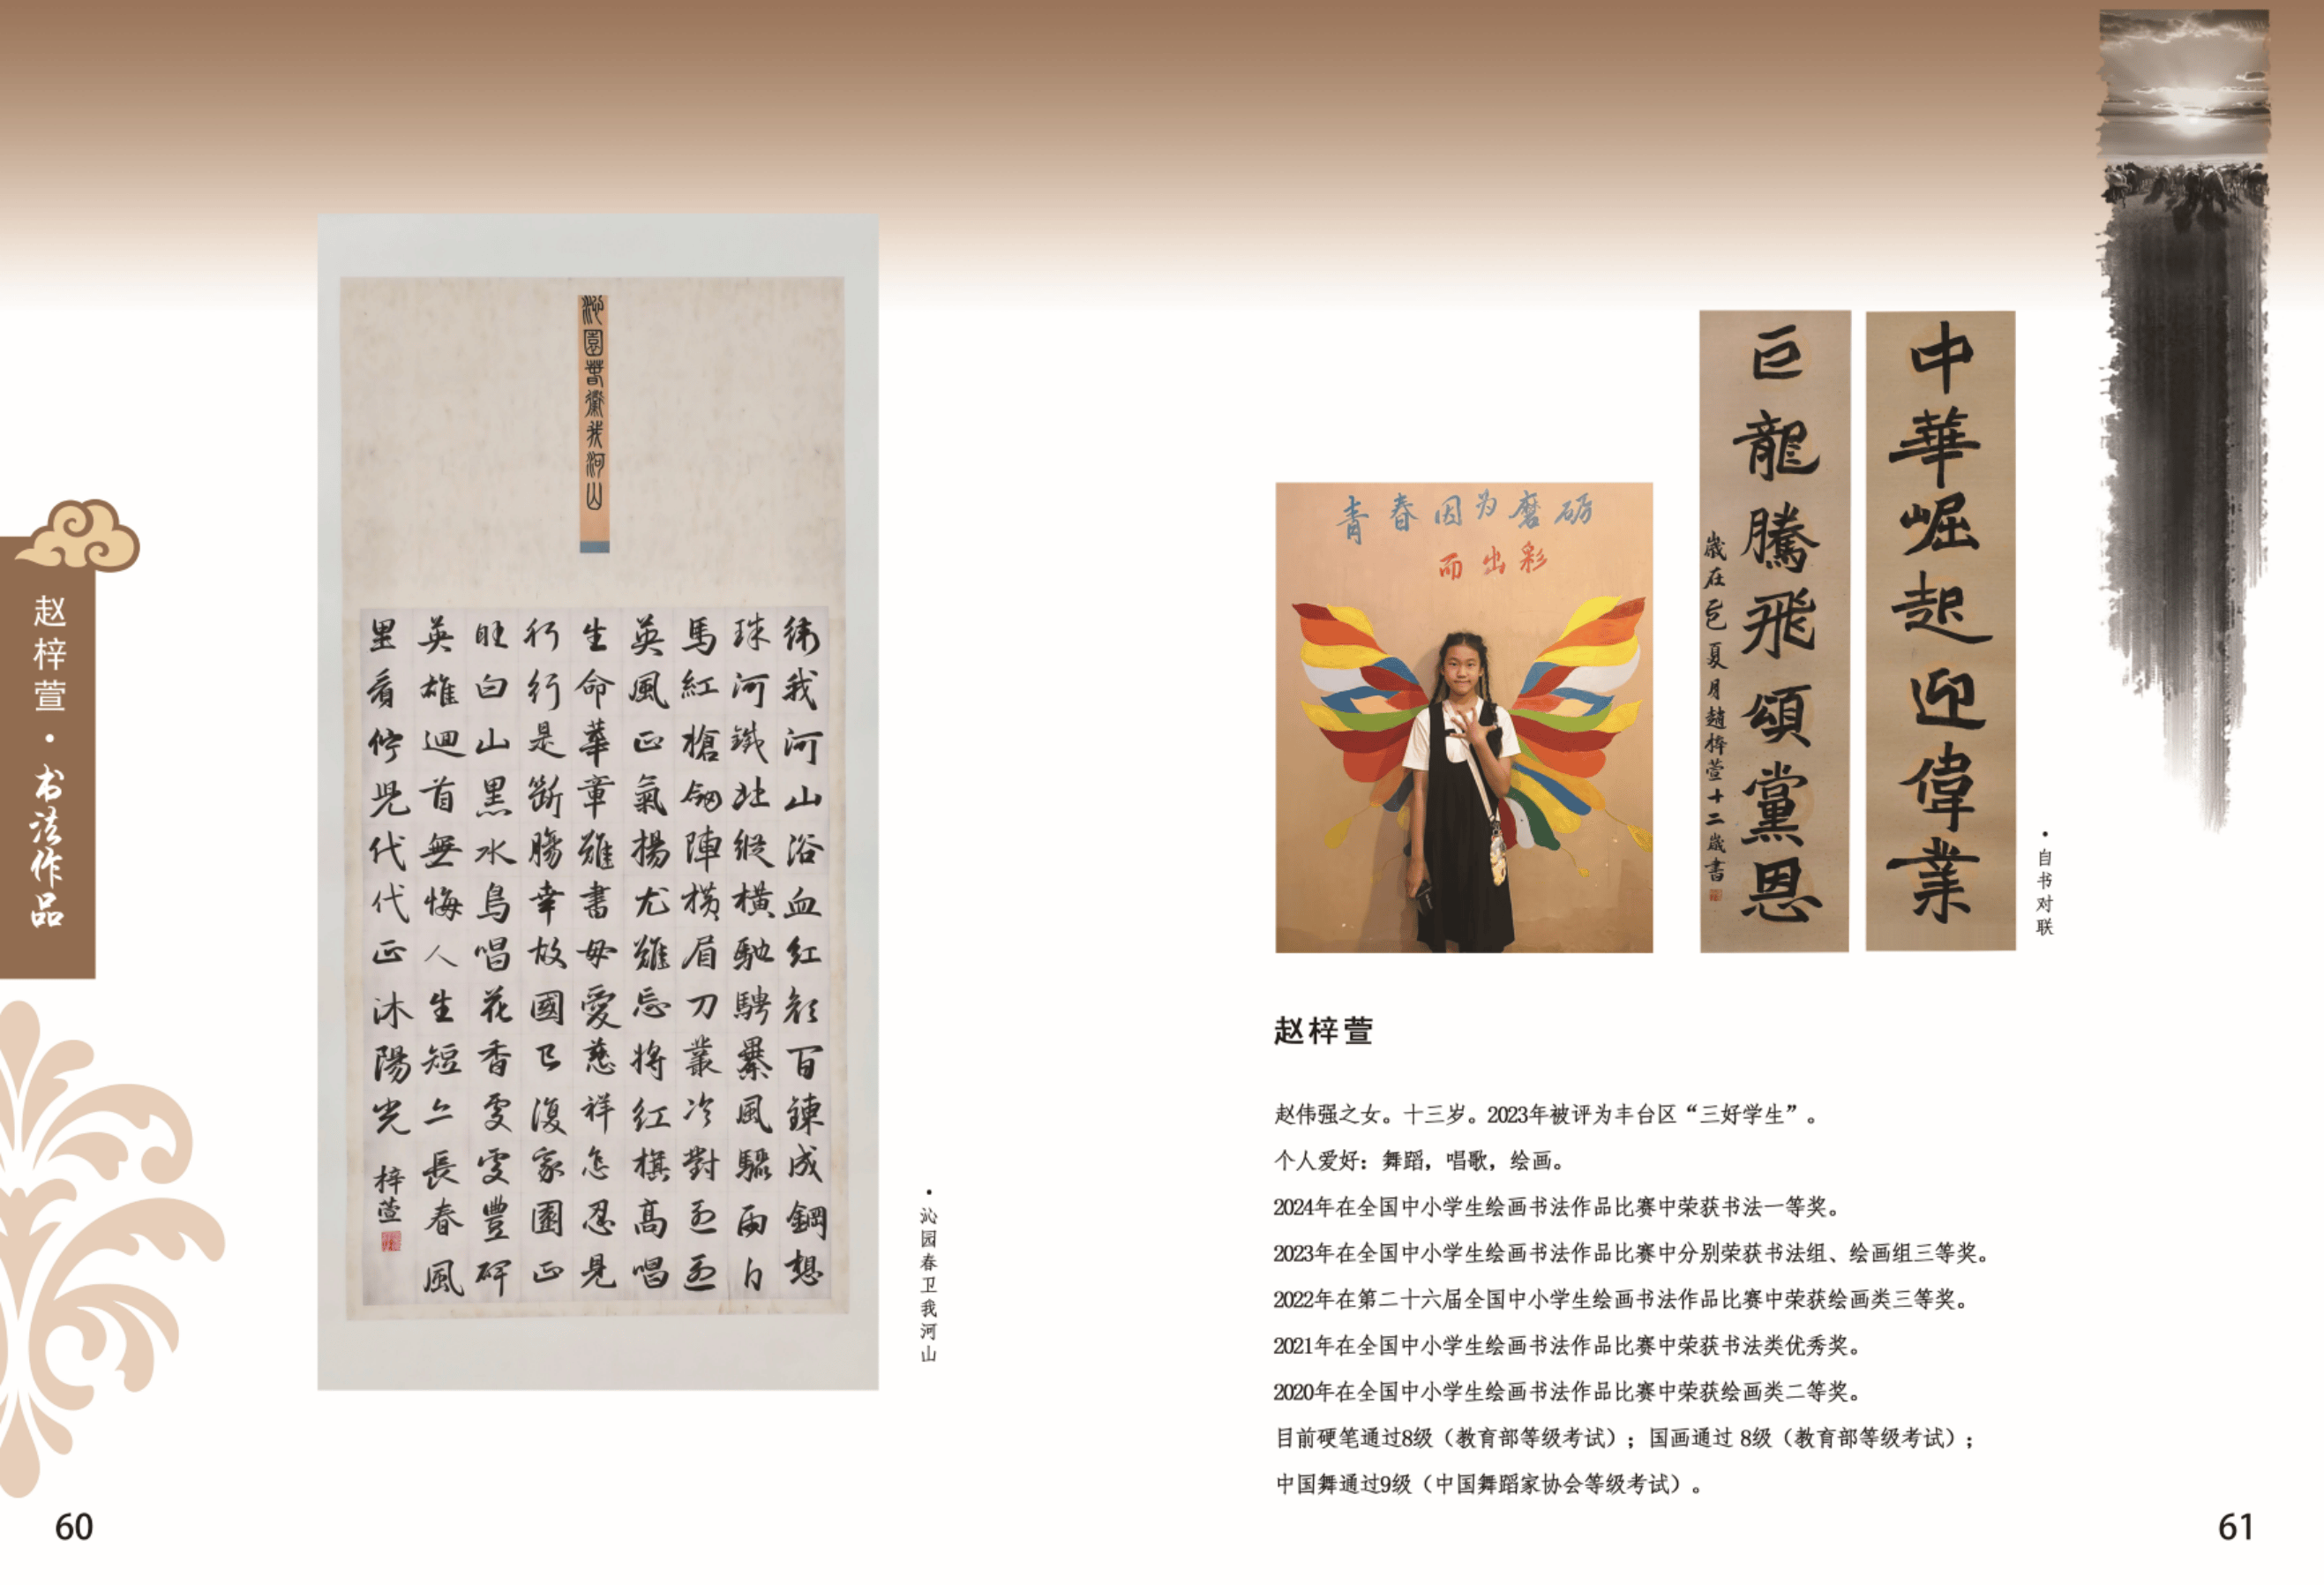 赵梓萱·书法作品
沁園春衛我河山
衛我河山浴血红顏百鍊成鋼想
珠河鐵北縱橫馳騁暴風驟雨白
馬紅槍陣橫眉刀叢冷對
英風正氣揚尤難忘將红旗高唱
生命華章難書母愛慈祥怎忍見
行行是斷腸幸故國已復家園正
旺白山黑水鳥唱花香處處豐碑
英雄迴首無悔人生短亦長春風
里看兒代代正沐陽光
梓萱
·沁园春卫我河山
60
中華崛起迎偉業
巨龍騰飛頌黨恩
歲在乙巳夏月趙梓萱十二歲書
·自书对联
青春因为磨砺
而出彩
赵梓萱
赵伟强之女。十三岁。2023年被评为丰台区“三好学生”。
个人爱好：舞蹈，唱歌，绘画。
2024年在全国中小学生绘画书法作品比赛中荣获书法一等奖。
2023年在全国中小学生绘画书法作品比赛中分别荣获书法组、绘画组三等奖。
2022年在第二十六届全国中小学生绘画书法作品比赛中荣获绘画类三等奖。
2021年在全国中小学生绘画书法作品比赛中荣获书法类优秀奖。
2020年在全国中小学生绘画书法作品比赛中荣获绘画类二等奖。
目前硬笔通过8级（教育部等级考试）；国画通过 8级（教育部等级考试）；
中国舞通过9级（中国舞蹈家协会等级考试）。
61